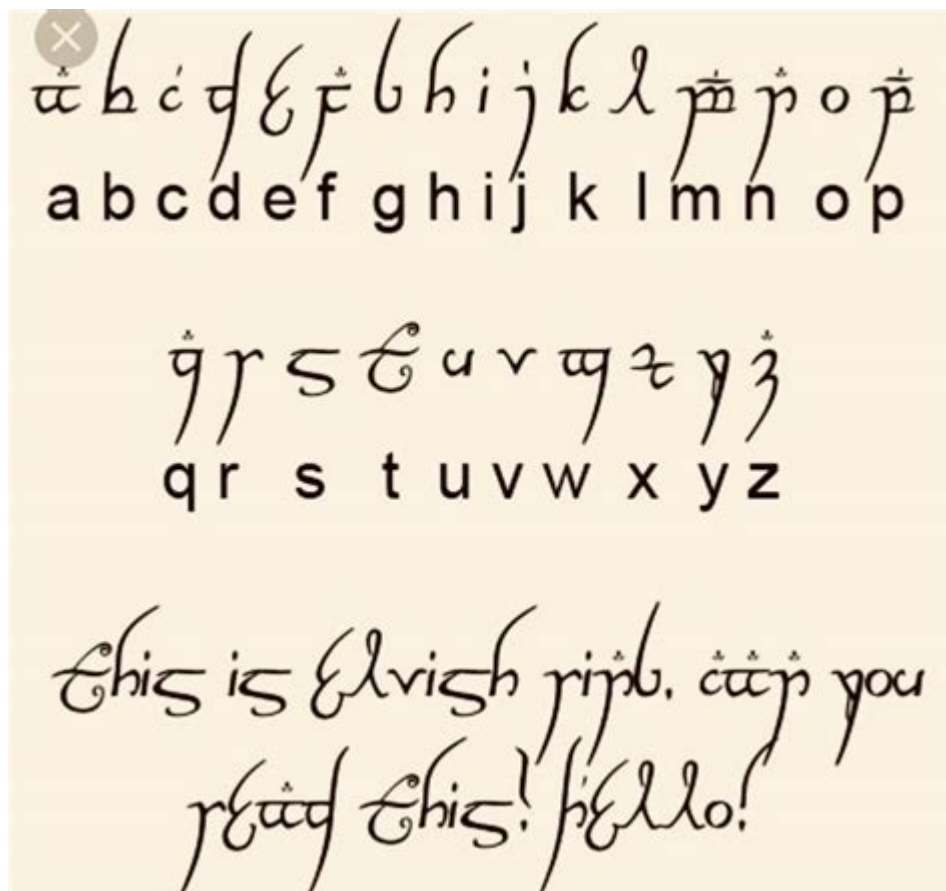 a b c d e f g h i j k l m n o p
a b c d e f g h i j k l m n o p
q r s t u v w x y z
q r s t u v w x y z
This is Elvish ring, can you
read this! hello!